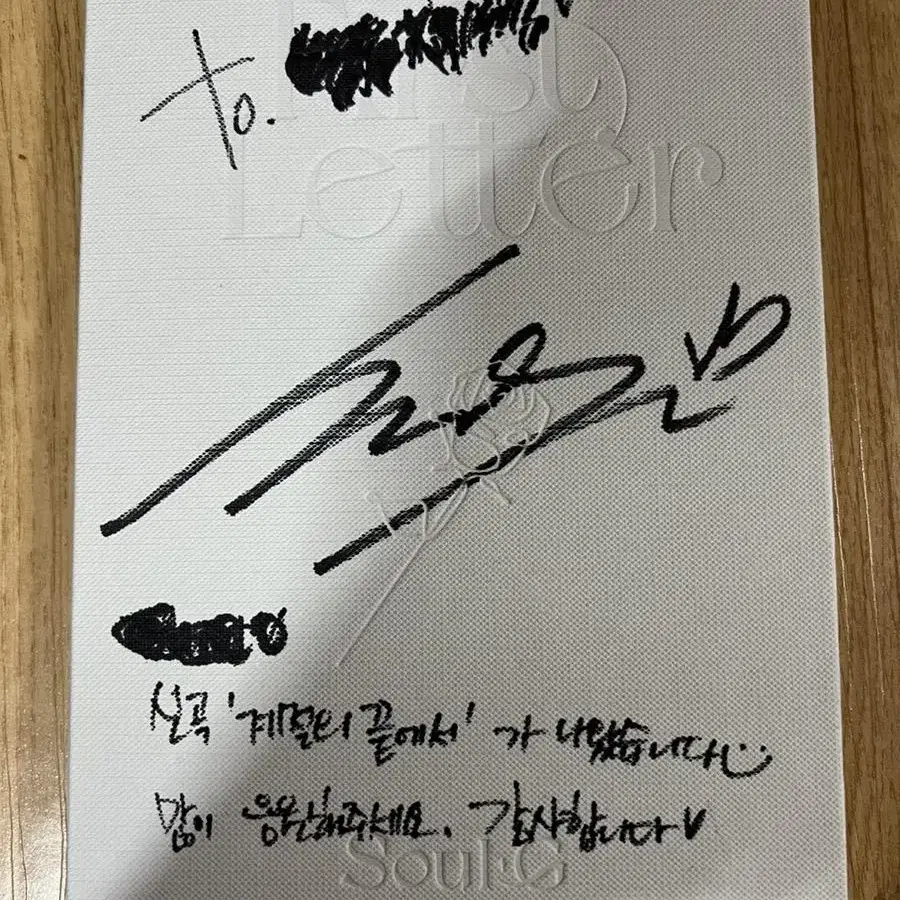 To.
First
Letter
신곡 '계절의 끝에서' 가 나왔습니다
많이 응원해주세요. 감사합니다♡
Soul-G